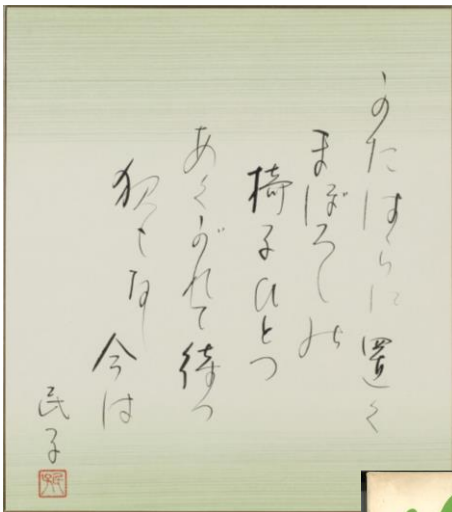 かたはらに置く
まぼろしの
椅子ひとつ
あくがれて待つ
夜もなし今は
民子